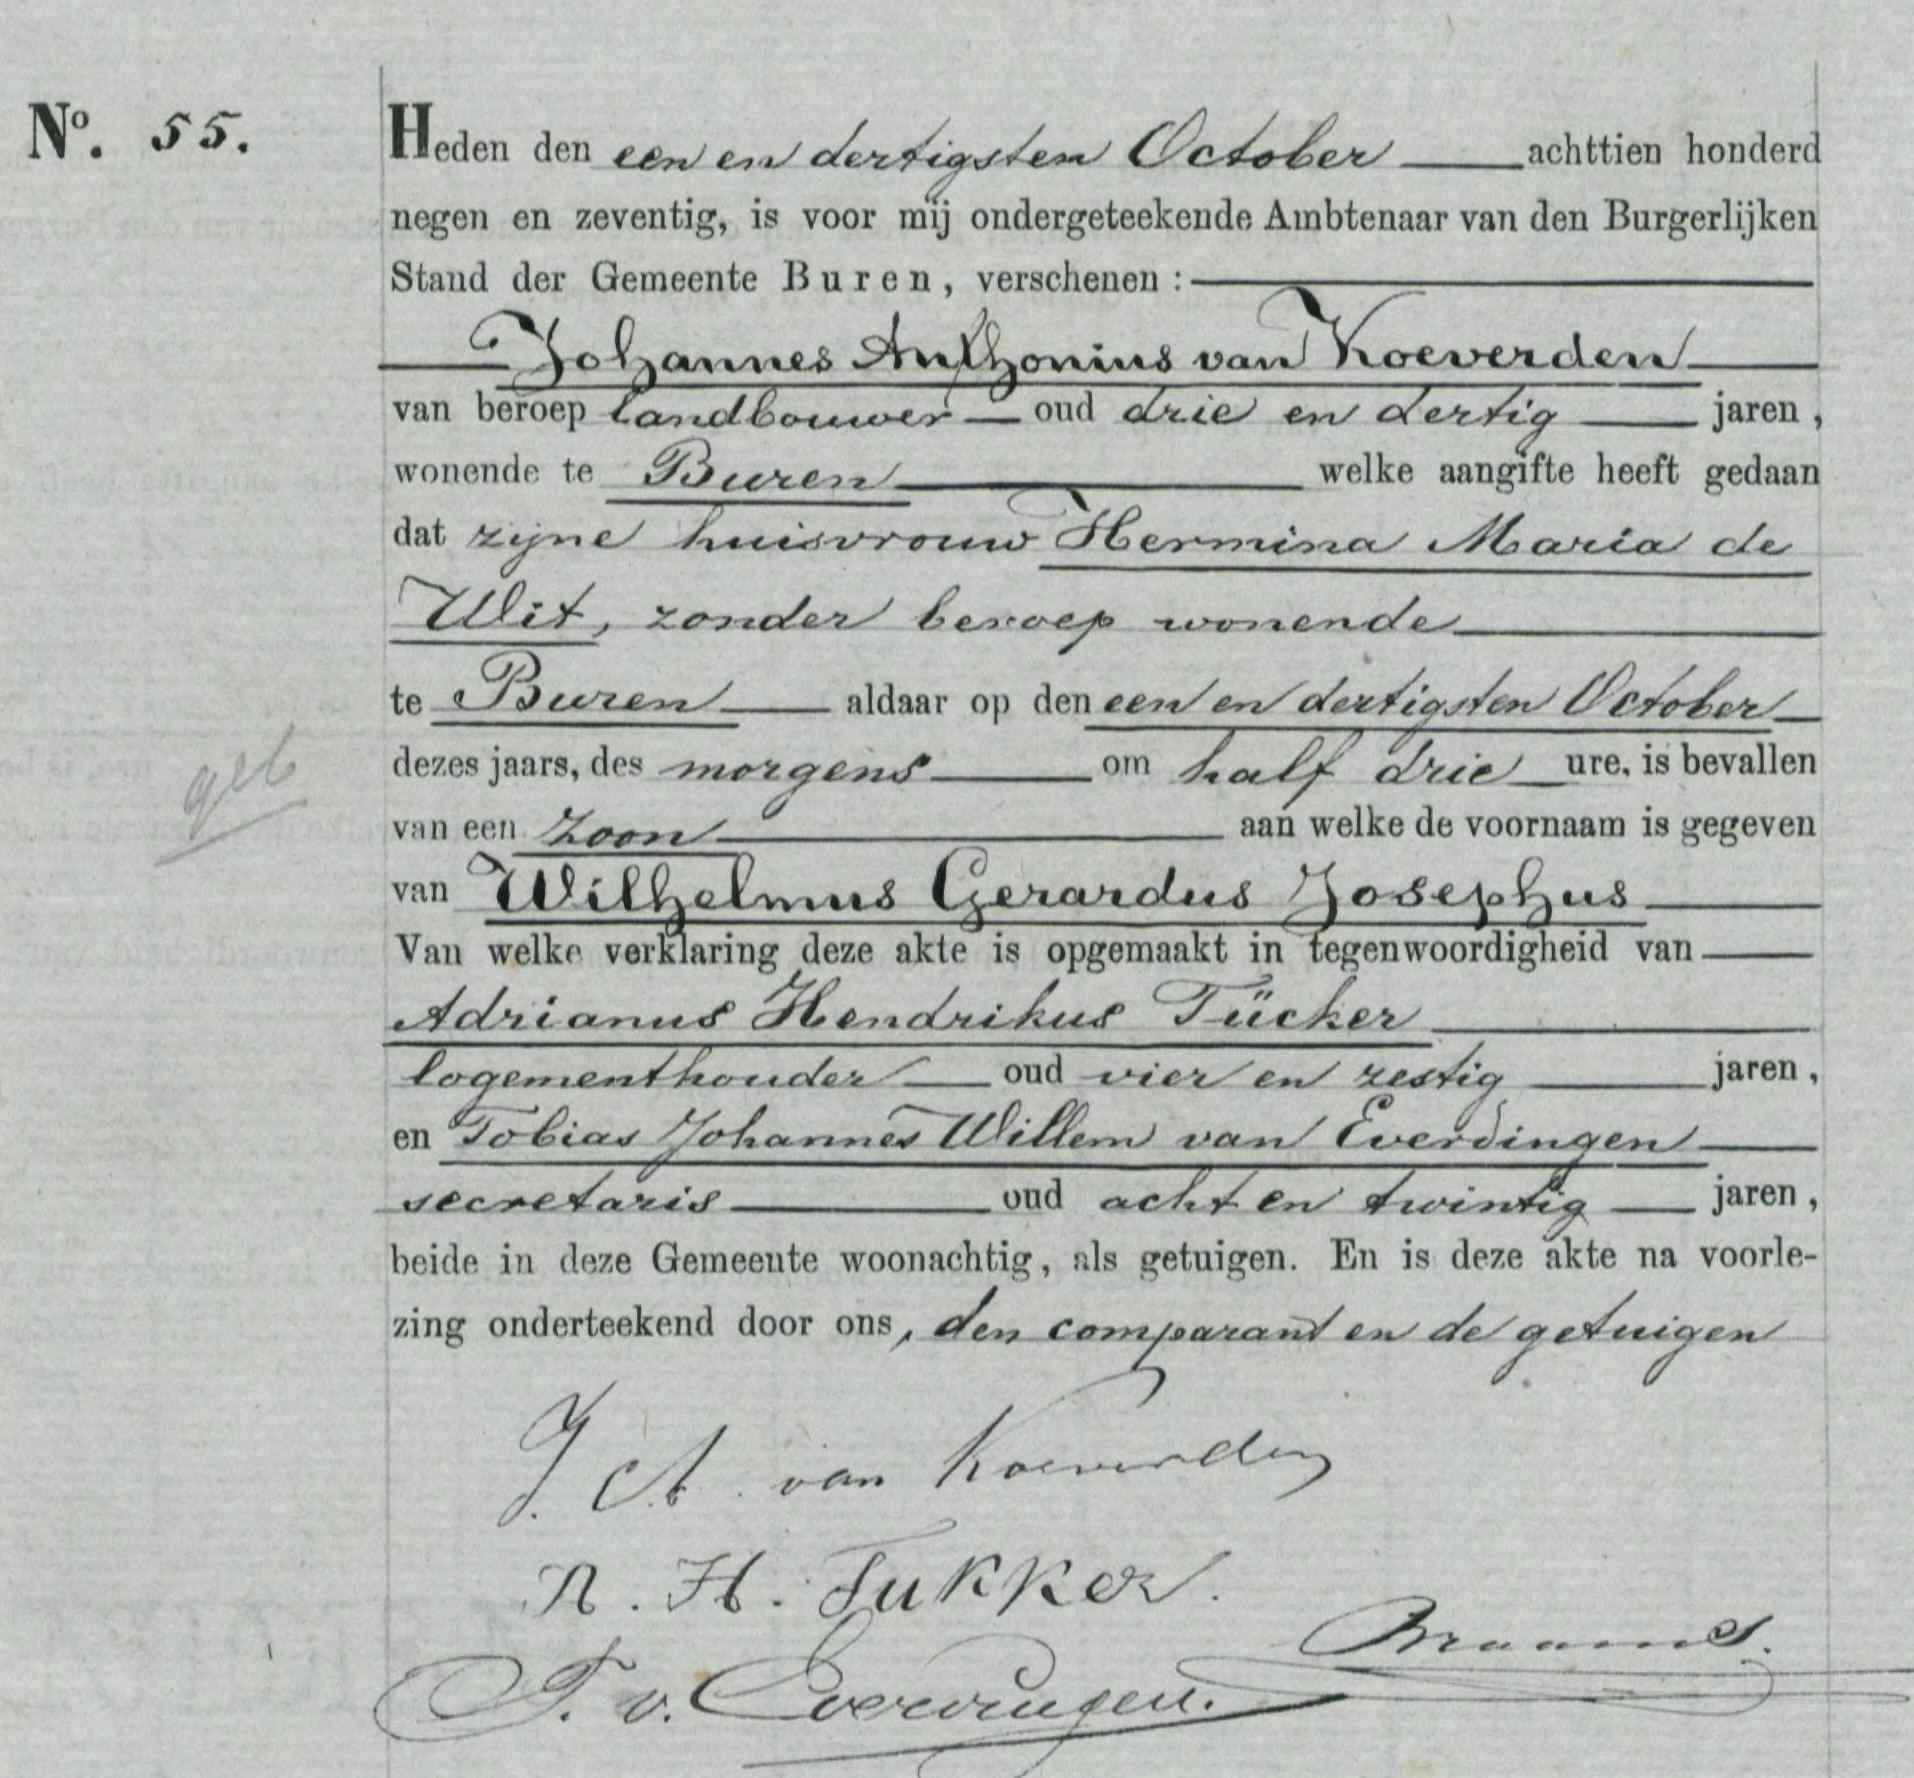 No. 55.
Heden den een en dertigsten October achttien honderd
negen en zeventig, is voor mij ondergeteekende Ambtenaar van den Burgerlijken
Stand der Gemeente Buren, verschenen:
Johannes Anthonius van Koeverden
van beroep landbouwer oud drie en dertig jaren,
wonende te Buren welke aangifte heeft gedaan
dat zijne huisvrouw Hermina Maria de
Wit, zonder beroep wonende
te Buren aldaar op den een en dertigsten October
dezes jaars, des morgens om half drie ure, is bevallen
geb
van een zoon aan welke de voornaam is gegeven
van Wilhelmus Gerardus Josephus
Van welke verklaring deze akte is opgemaakt in tegenwoordigheid van
Adrianus Hendrikus Tücker
logementhouder oud vier en zestig jaren,
en Tobias Johannes Willem van Everdingen
secretaris oud acht en twintig jaren,
beide in deze Gemeente woonachtig, als getuigen. En is deze akte na voorle-
zing onderteekend door ons, den comparant en de getuigen
J. A. van Koeverden
A. H. Tukker.
Braams.
T. v. Everdingen.